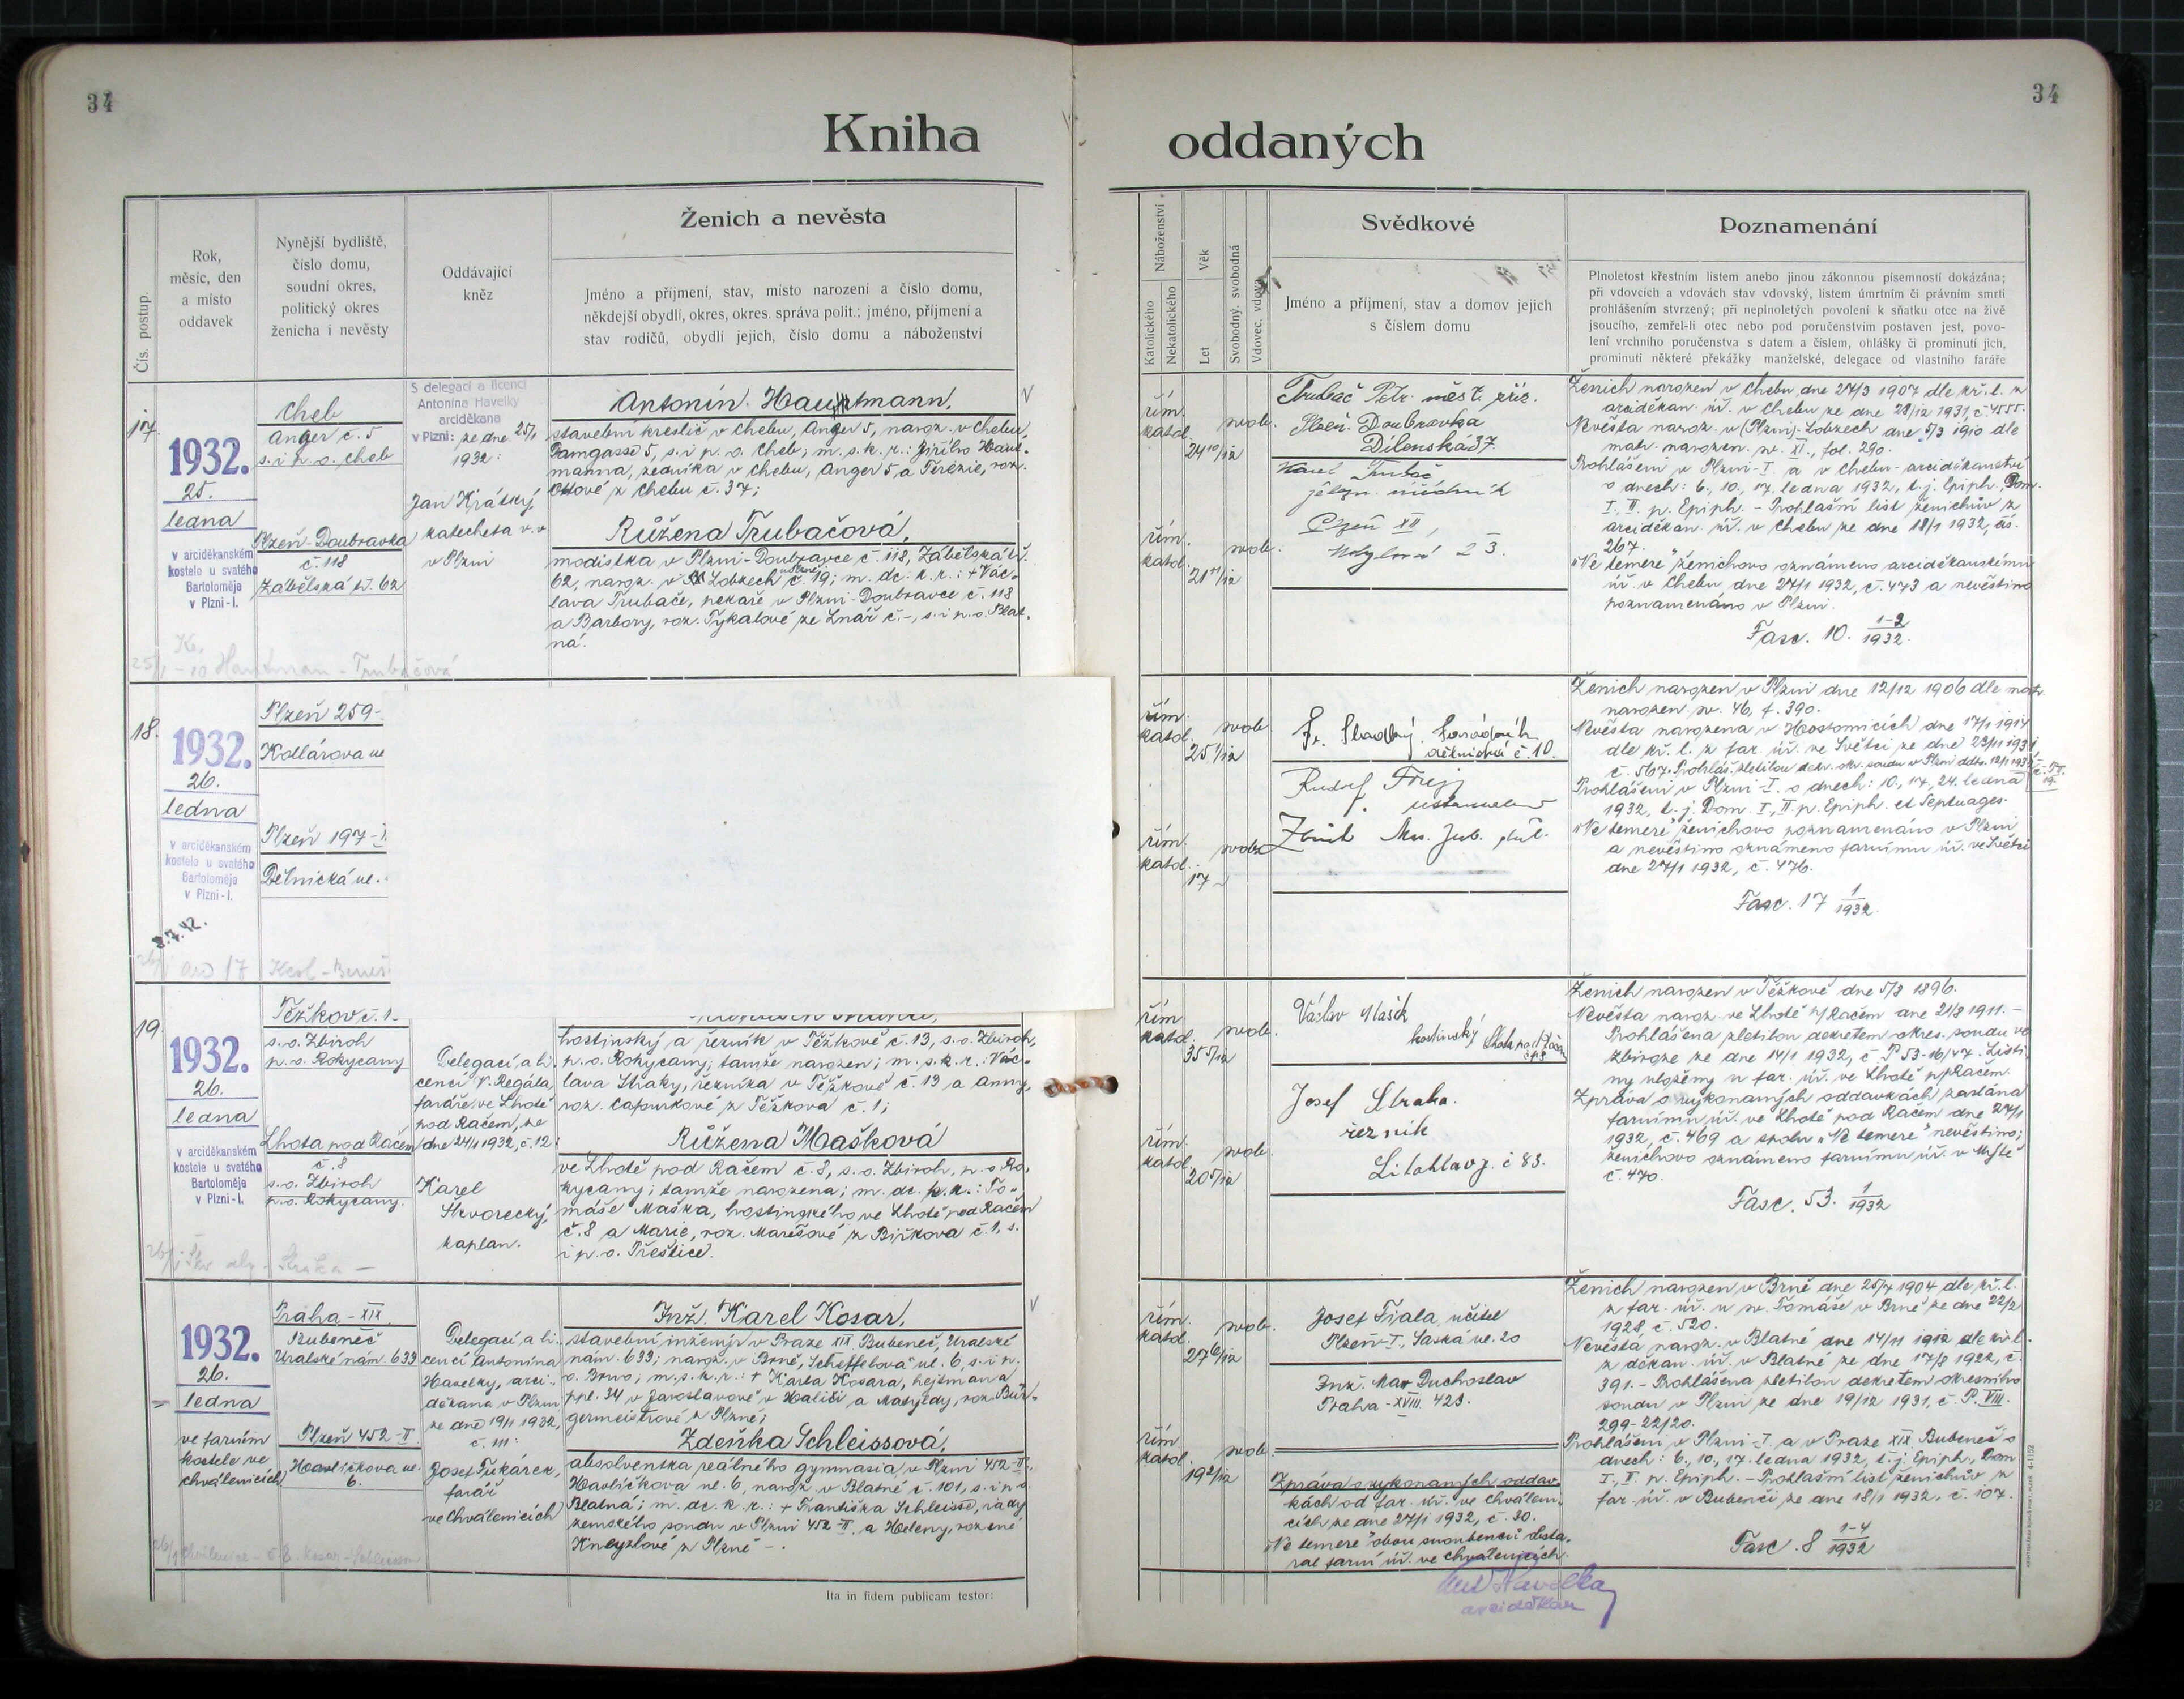 34
34
Kniha
oddaných
Čís. postup.
Rok,
měsíc, den
a místo
oddavek
Nynější bydliště,
číslo domu,
soudní okres,
politický okres
ženicha i nevěsty
Oddávající
kněz
Ženich a nevěsta
Jméno a příjmení, stav, místo narození a číslo domu,
někdejší obydlí, okres, okres. správa polit.; jméno, příjmení a
stav rodičů, obydlí jejich, číslo domu a náboženství
Náboženství
Katolického
Nekatolického
Věk
Let
Svobodný, svobodná
Vdovec, vdova
Svědkové
Jméno a příjmení, stav a domov jejich
s číslem domu
Poznamenání
Plnoletost křestním listem anebo jinou zákonnou písemností dokázána;
při vdovcích a vdovách stav vdovský, listem úmrtním či právním smrti
prohlášením stvrzený; při neplnoletých povolení k sňatku otce na živě
jsoucího, zemřel-li otec nebo pod poručenstvím postaven jest, povo-
lení vrchního poručenstva s datem a číslem, ohlášky či prominutí jich,
prominutí některé překážky manželské, delegace od vlastního faráře
17
1932.
25.
ledna
v arciděkanském
kostele u svatého
Bartoloměje
v Plzni-I.
Cheb
Anger č. 5
s. i p. o. Cheb
Plzeň-Doubravka
č. 118
Zábělská tř. 62
S delegací a licencí
Antonína Havelky
arciděkana
v Plzni: ze dne 25/1
1932:
Jan Krátký,
katecheta v. v.
v Plzni
Antonín Hauptmann,
stavební kreslič v Chebu, Anger 5, naroz. v Chebu,
Damgasse 5, s. i p. o. Cheb; m. s. k. r.: Jiřího Haut-
manna, zedníka v Chebu, Anger 5, a Terezie, roz.
Ottové z Chebu č. 37;
Růžena Trubačová,
modistka v Plzni-Doubravce č. 118, Zábělská tř.
62, naroz. v Lobzech č. 19; m. dc. k. r.: + Vác-
lava Trubače, pekaře v Plzni-Doubravce č. 118
a Barbory, roz. Tykalové ze Lnář č.-, s. i p. o. Blat-
ná.
25/1 - 10 Hautman - Trubačová
řím.
katol.
svob.
24 10/12
řím.
katol.
svob.
21
Trubač Petr. měst. zříz.
Plzeň. Doubravka
Dílenská 37
Trubač
Plzeň XII,
23.
Ženich narozen v Chebu dne 27/3 1907 dle kř. l. z
arciděkan. úř. v Chebu ze dne 28/12 1931, č. 4555.
Nevěsta naroz. v (Plzni)-Lobzech dne 5/3 1910 dle
matr. narozen. sv. XI., fol. 290.
Prohlášeni v Plzni-I. a v Chebu-arciděkanství
o dnech: 6., 10., 17. ledna 1932, t. j. Epiph., Dom.
I., II. p. Epiph. - Prohlašní list ženichův z
arciděkan. úř. v Chebu ze dne 18/1 1932, čís.
267.
„Ne temere" ženichovo oznámeno arciděkanskému
úř. v Chebu, dne 27/1 1932, č. 473 a nevěstino
poznamenáno v Plzni.
Fasc. 10. 1-2/1932.
18.
1932.
26.
ledna
v arciděkanském
kostele u svatého
Bartoloměje
v Plzni-I.
8.7.42.
Plzeň 259-
Kollárova ul
Plzeň 197-
Dělnická ul.
řím.
katol.
svob.
25 1/12
řím.
katol.
svob.
17
dělnická č. 10.
Rudolf
Ženich narozen v Plzni dne 12/12 1906 dle matr.
narozen sv. 46, f. 390.
Nevěsta narozena v Hostomicích dne 17/1 1914
dle kř. l. z far. úř. ve Světci ze dne 23/11 1931
č. 567. Prohláš. zletilou dekr. okr. soudu v Plzni ddto. 12/1 1932
Prohlášeni v Plzni-I. o dnech: 10., 17., 24. ledna
1932, t. j. Dom. I., II. p. Epiph. et Septuages.
„Ne temere" ženichovo poznamenáno v Plzni
a nevěstino oznámeno farnímu úř. ve Světci
dne 27/1 1932, č. 476.
Fasc. 17 1/1932.
19.
1932.
26.
ledna
v arciděkanském
kostele u svatého
Bartoloměje
v Plzni-I.
Těžkov č. 1-
s. o. Zbiroh
p. o. Rokycany
Lhota pod Račem
č. 8
s. o. Zbiroh
p. o. Rokycany.
Delegací, a li-
cencí V. Regála,
faráře ve Lhotě
pod Račem, ze
dne 24/1 1932, č. 12:
Karel
Skvorecký,
kaplan.
hostinský a řezník v Těžkově č. 13, s. o. Zbiroh,
p. o. Rokycany; tamže narozen; m. s. k. r.: Vác-
lava Straky, řezníka v Těžkově č. 13 a Anny,
roz. Cafourkové z Těžkova č. 1;
Růžena Mašková
ve Lhotě pod Račem č. 8, s. o. Zbiroh, p. o. Ro-
kycany; tamže narozena; m. dc. k. r.: To-
máše Maška, hostinského ve Lhotě pod Račem
č. 8 a Marie, roz. Marešové z Biřkova č. 1, s.
i p. o. Přeštice.
řím.
katol.
svob.
35 5/12
řím.
katol.
svob.
20 5/12
Václav Mašek
hostinský
Josef Straka.
řezník
Litohlavy. č 83.
Ženich narozen v Těžkově dne 5/8 1896.
Nevěsta naroz. ve Lhotě p/Račem dne 21/8 1911. -
Prohlášena zletilou dekretem okres. soudu ve
Zbiroze ze dne 14/1 1932, č. P 53-16/47. Listi-
ny uloženy u far. úř. ve Lhotě p/Račem.
Zpráva o vykonaných oddavkách zaslána
farnímu úř. ve Lhotě pod Račem dne 27/1
1932, č. 469 a spolu „Ne temere" nevěstino;
ženichovo oznámeno farnímu úř. v Mýtě
č. 470.
Fasc. 53. 1/1932
1932.
26.
ledna
ve farním
kostele ve
Chválenicích
Praha-XIX.
Bubeneč
Uralské nám. 633
Plzeň 452-II.
Havlíčkova ul.
6.
Delegací, a li-
cencí Antonína
Havelky, arci-
děkana v Plzni
ze dne 19/1 1932,
č. 111:
Josef Pukárek,
farář
ve Chválenicích
Inž. Karel Kosar,
stavební inženýr v Praze XIX. Bubeneč, Uralské
nám. 633; naroz. v Brně, Scheffelova ul. 6, s. i p.
o. Brno; m. s. k. r.: + Karla Kosara, hejtmana
ppl. 34 v Jaroslavově v Haliči a Matyldy, roz. Bür-
germeistrové z Plzně;
Zdeňka Schleissová,
absolventka reálného gymnasia v Plzni 452-II.
Havlíčkova ul. 6, naroz. v Blatné č. 101, s. i p. o.
Blatná; m. dc. k. r.: + Františka Schleisse, rady
zemského soudu v Plzni 452-II. a Heleny, rozené
Kneyzlové z Plzně -.
Ita in fidem publicam testor:
řím.
katol.
svob.
27 6/12
řím.
katol.
svob.
19 2/12
Josef Fiala, učitel
Plzeň-I., Saská ul. 20
Inž. Max Duchoslav
Praha-XVIII. 423.
Zpráva o vykonaných oddav-
kách od far. úř. ve Chválen-
icích ze dne 27/1 1932, č. 30.
„Ne temere" obou snoubenců obsta-
ral farní úř. ve Chválenicích.
Havelka
arciděkan
Ženich narozen v Brně dne 25/7 1904 dle kř. l.
z far. úř. u sv. Tomáše v Brně ze dne 22/2
1928 č. 520.
Nevěsta naroz. v Blatné dne 14/11 1912 dle kř. l.
z děkan. úř. v Blatné ze dne 17/8 1922, č.
391. - Prohlášena zletilou dekretem okresního
soudu v Plzni ze dne 19/12 1931, č. P. VIII.
299-22/20.
Prohlášeni v Plzni-I. a v Praze XIX. Bubeneč o
dnech: 6., 10., 17. ledna 1932, t. j. Epiph., Dom
I., II. p. Epiph. - Prohlašní list ženichův z
far. úř. v Bubenči ze dne 18/1 1932, č. 107.
Fasc. 8 1-4/1932